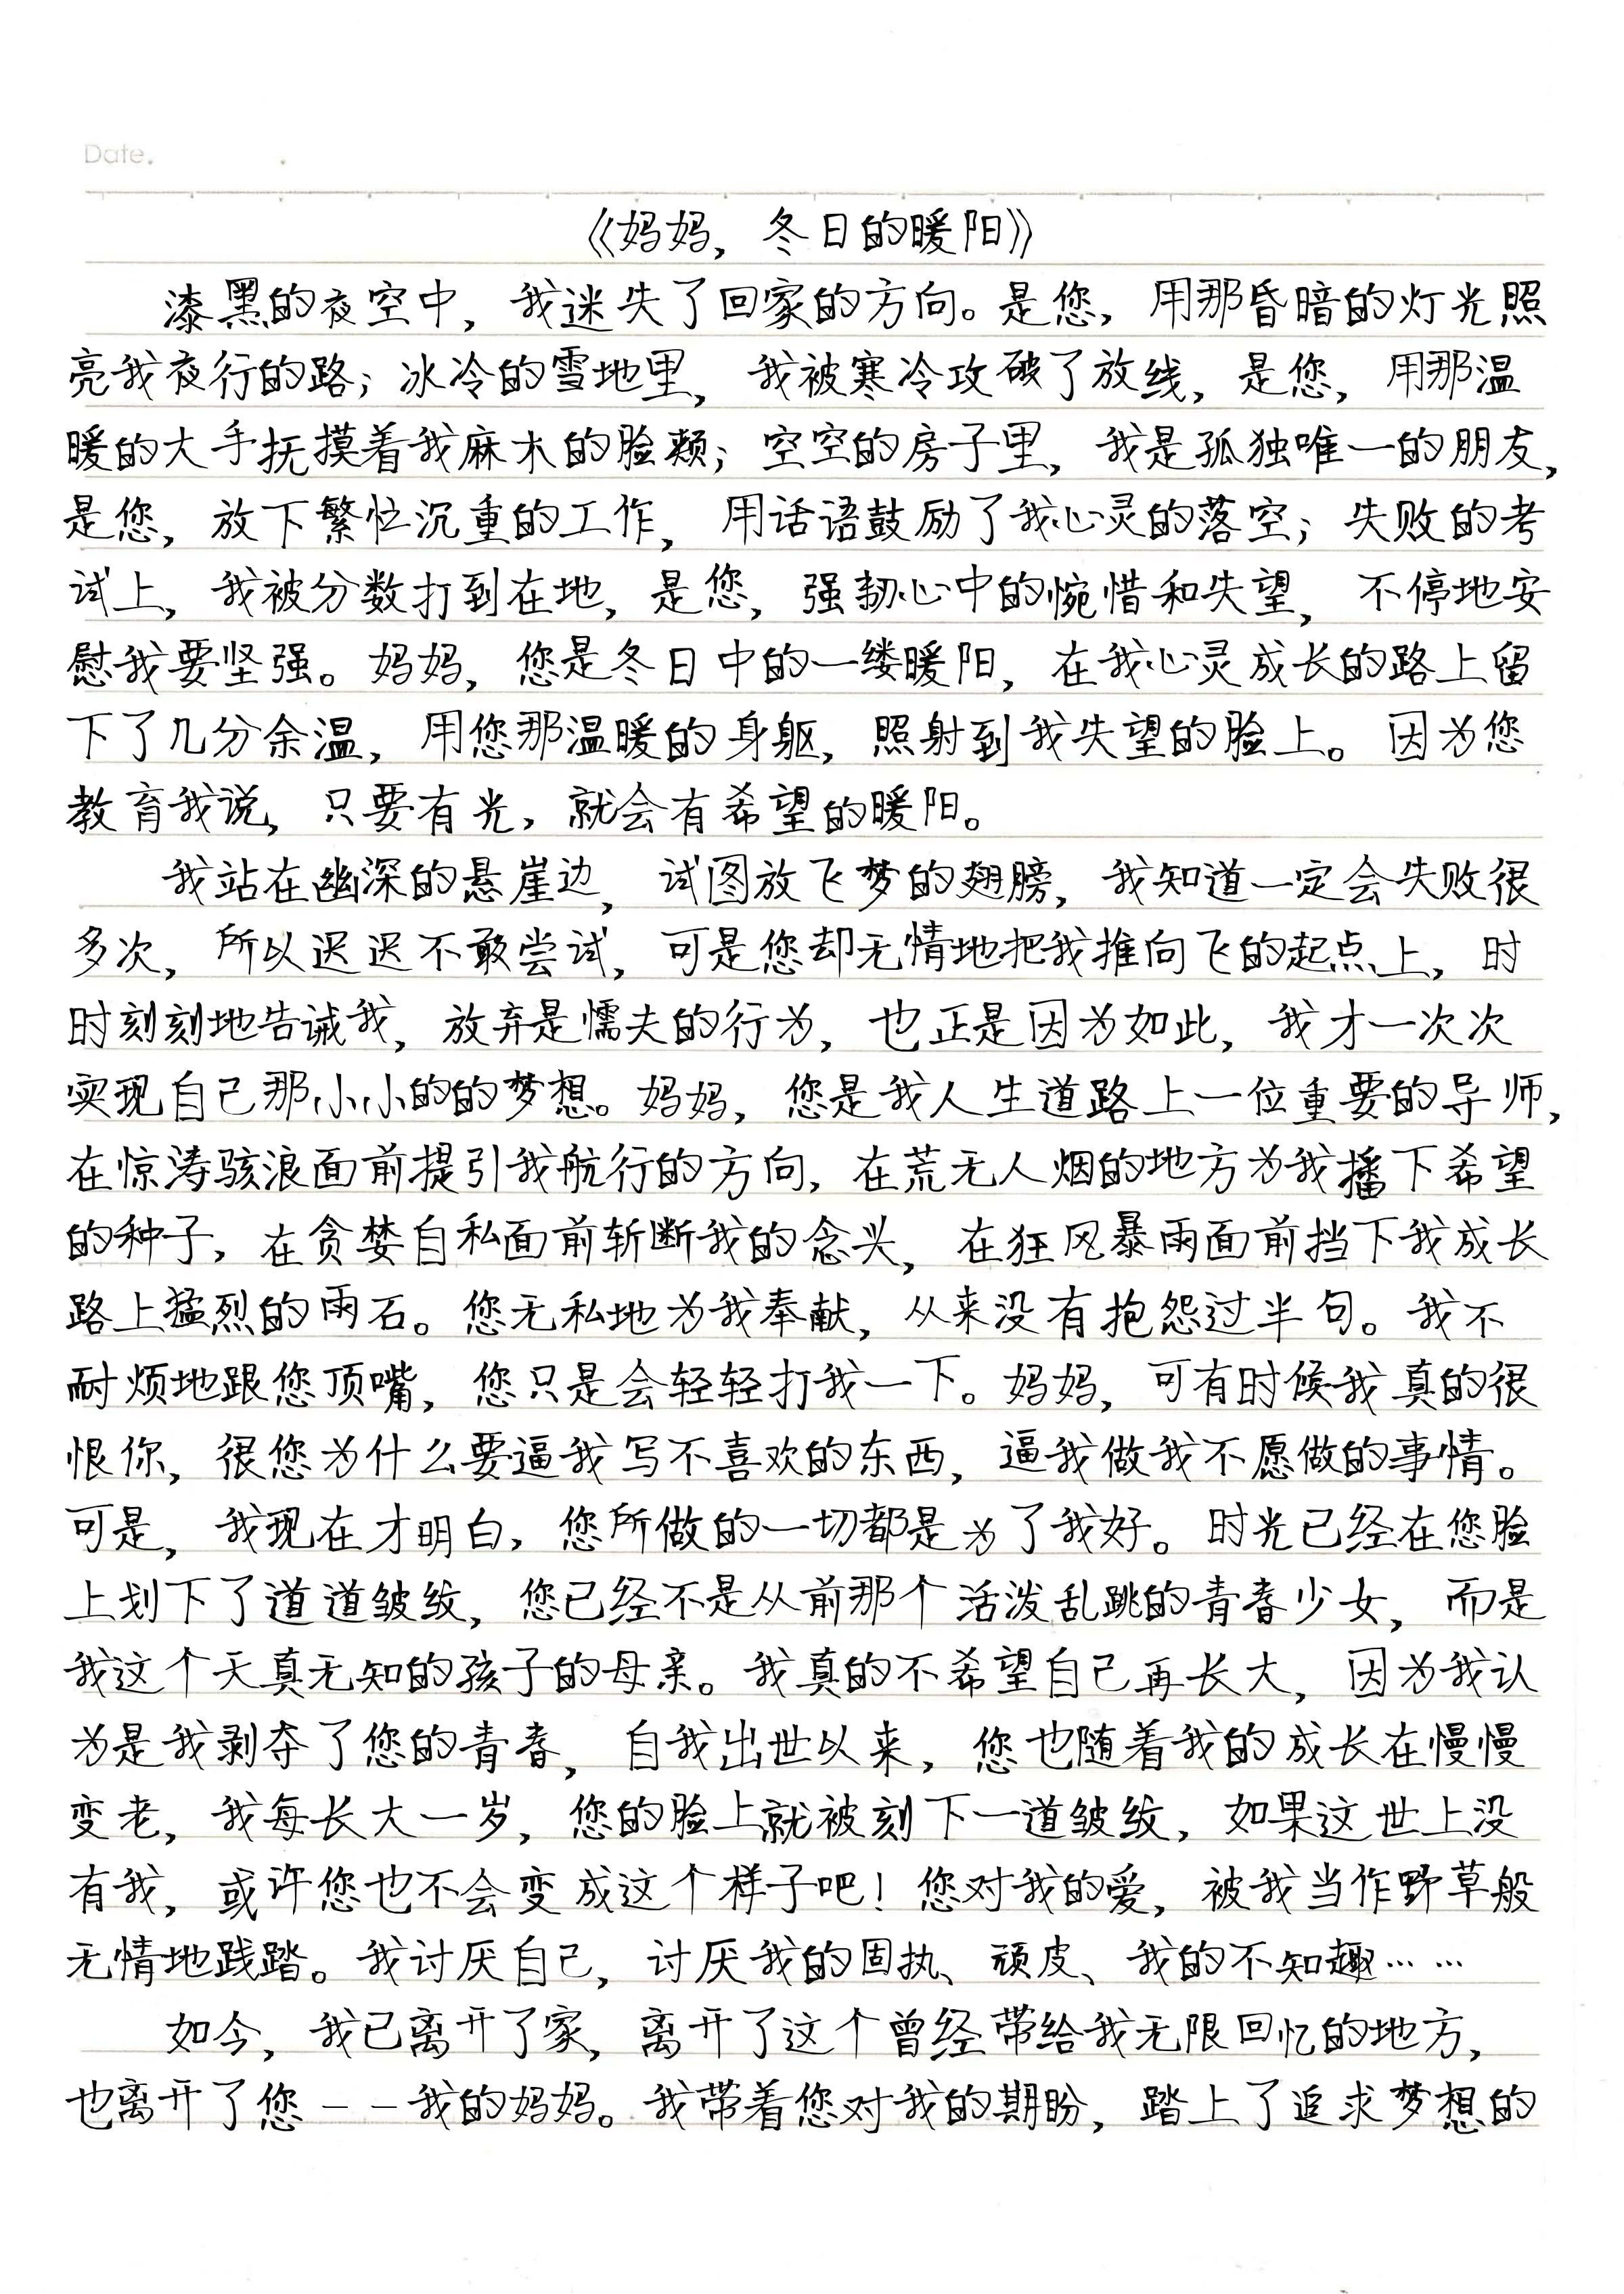 Date.
《妈妈，冬日的暖阳》
漆黑的夜空中，我迷失了回家的方向。是您，用那昏暗的灯光照
亮我夜行的路；冰冷的雪地里，我被寒冷攻破了放线，是您，用那温
暖的大手抚摸着我麻木的脸颊；空空的房子里，我是孤独唯一的朋友，
是您，放下繁忙沉重的工作，用话语鼓励了我心灵的落空；失败的考
试上，我被分数打到在地，是您，强韧心中的惋惜和失望，不停地安
慰我要坚强。妈妈，您是冬日中的一缕暖阳，在我心灵成长的路上留
下了几分余温，用您那温暖的身躯，照射到我失望的脸上。因为您
教育我说，只要有光，就会有希望的暖阳。
我站在幽深的悬崖边，试图放飞梦的翅膀，我知道一定会失败很
多次，所以迟迟不敢尝试，可是您却无情地把我推向飞的起点上，时
时刻刻地告诫我，放弃是懦夫的行为，也正是因为如此，我才一次次
实现自己那小小的的梦想。妈妈，您是我人生道路上一位重要的导师，
在惊涛骇浪面前提引我航行的方向，在荒无人烟的地方为我播下希望
的种子，在贪婪自私面前斩断我的念头，在狂风暴雨面前挡下我成长
路上猛烈的雨石。您无私地为我奉献，从来没有抱怨过半句。我不
耐烦地跟您顶嘴，您只是会轻轻打我一下。妈妈，可有时候我真的很
恨你，很您为什么要逼我写不喜欢的东西，逼我做我不愿做的事情。
可是，我现在才明白，您所做的一切都是为了我好。时光已经在您脸
上划下了道道皱纹，您已经不是从前那个活泼乱跳的青春少女，而是
我这个天真无知的孩子的母亲。我真的不希望自己再长大，因为我认
为是我剥夺了您的青春，自我出世以来，您也随着我的成长在慢慢
变老，我每长大一岁，您的脸上就被刻下一道皱纹，如果这世上没
有我，或许您也不会变成这个样子吧！您对我的爱，被我当作野草般
无情地践踏。我讨厌自己，讨厌我的固执、顽皮、我的不知趣……
如今，我已离开了家，离开了这个曾经带给我无限回忆的地方，
也离开了您——我的妈妈。我带着您对我的期盼，踏上了追求梦想的